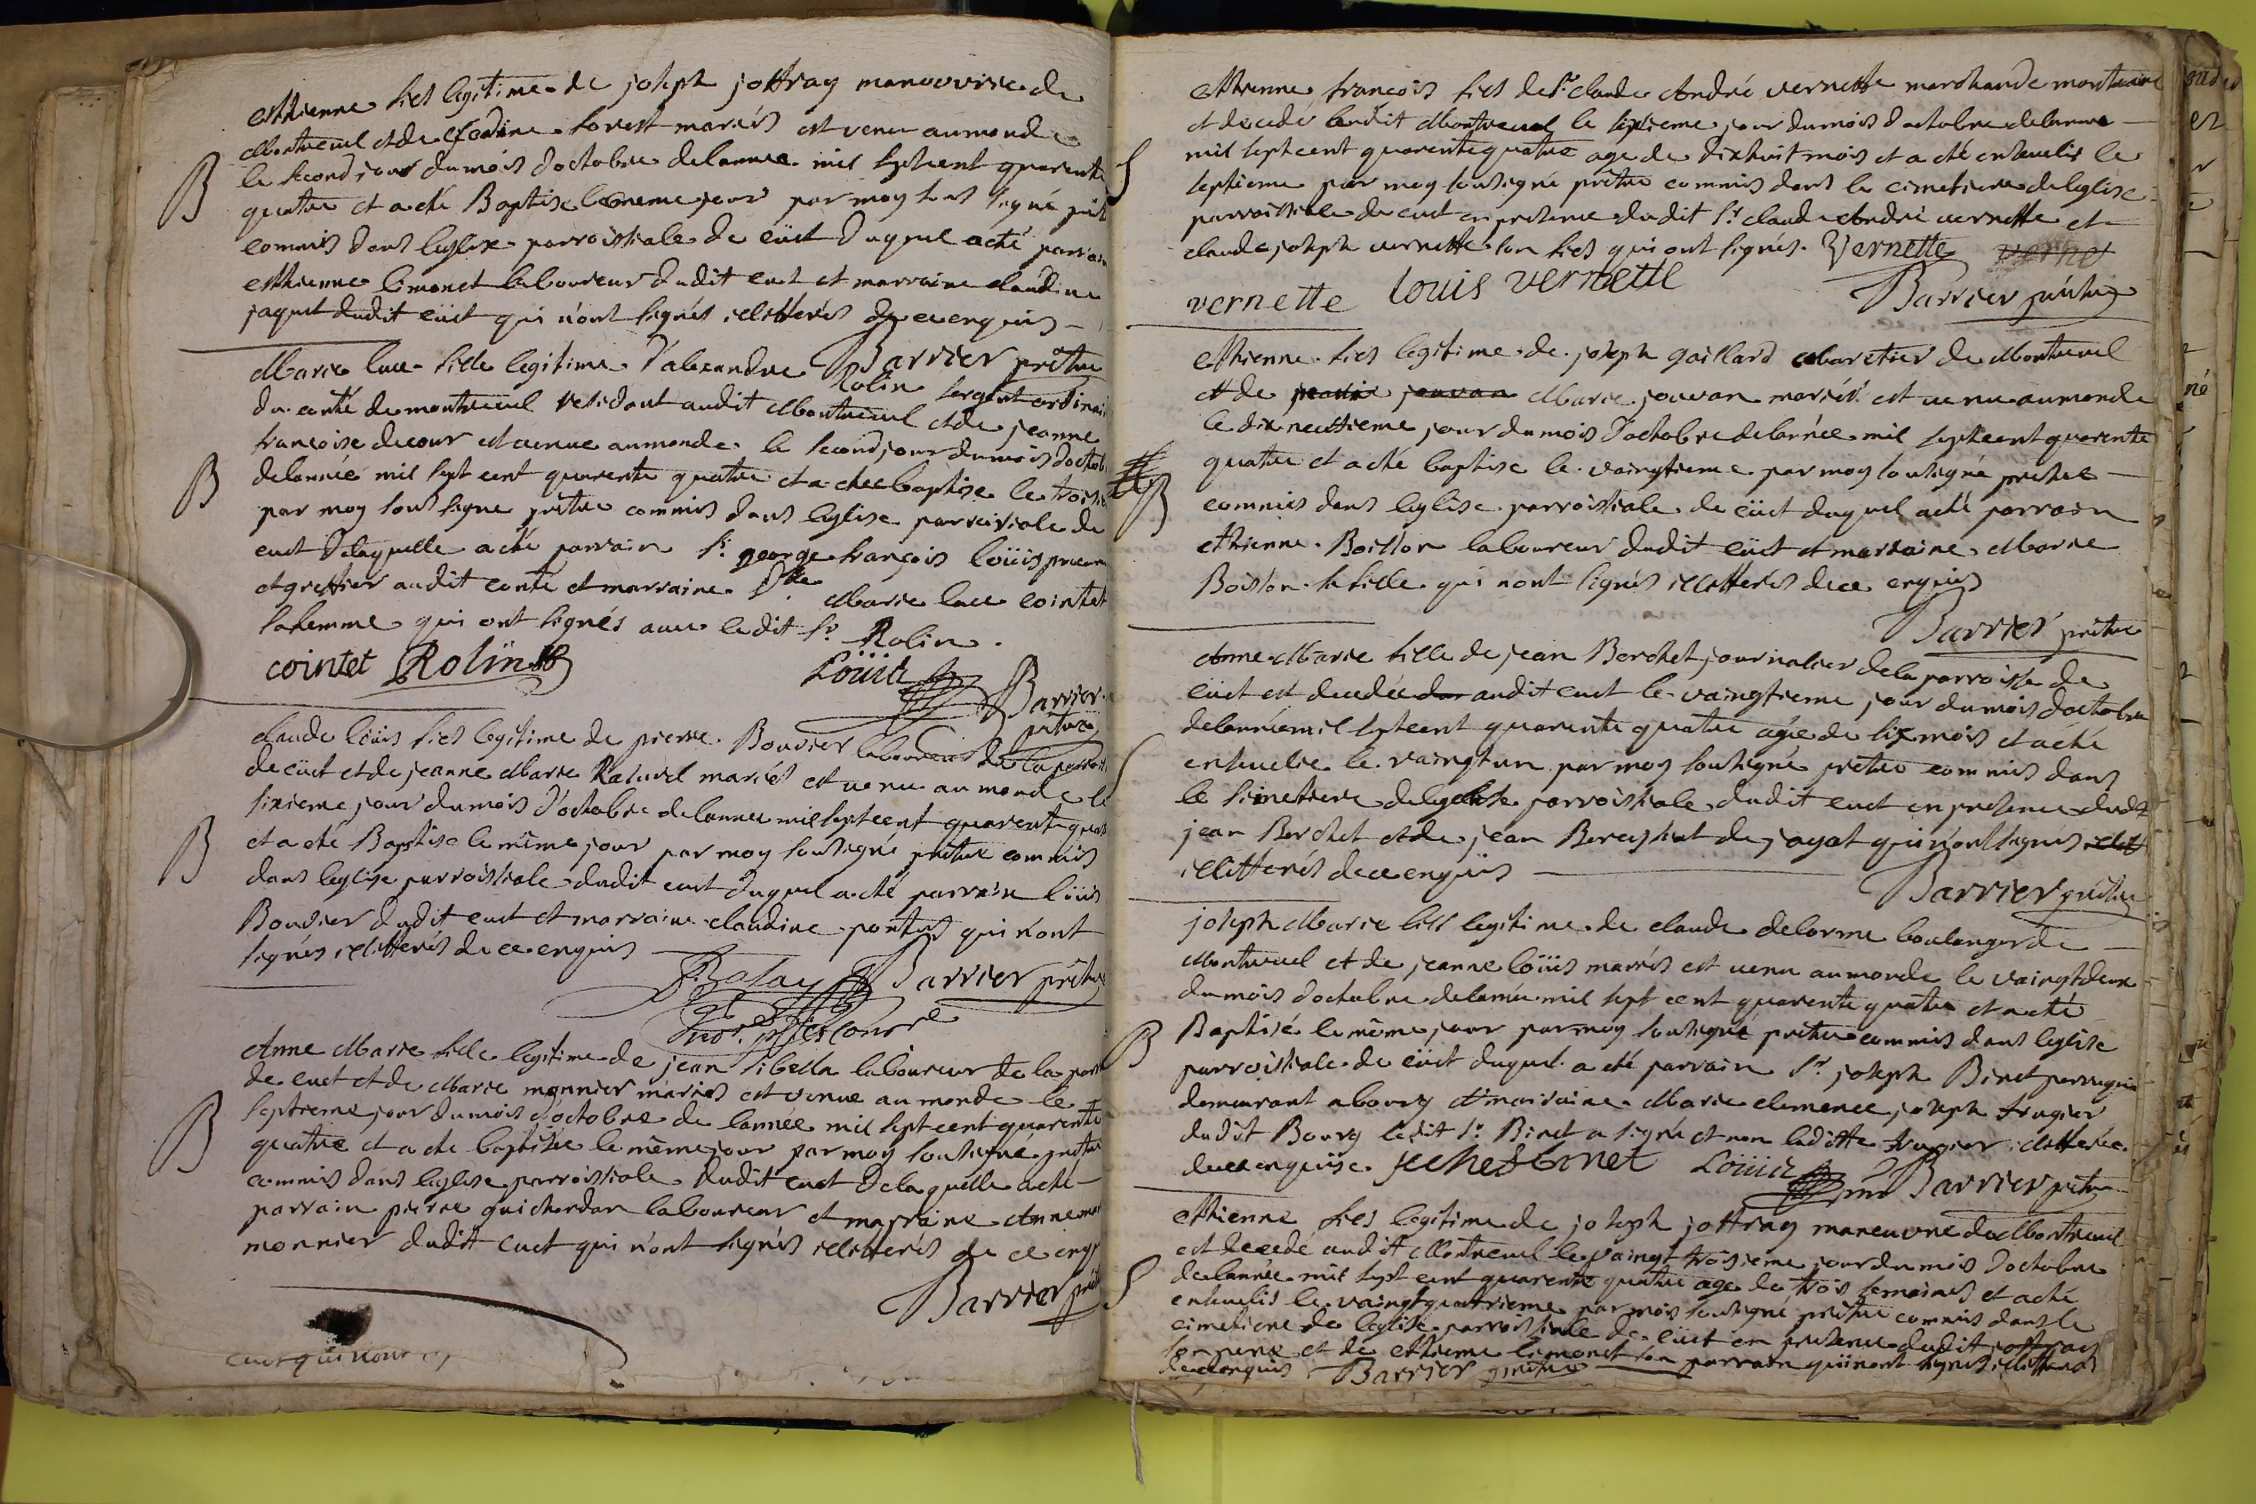 esthienne fils legitime de joseph joffray manouvrier de
Montrevel et de claudine forest mariés est venu au monde
B
le second jour du mois d'octobre de lannee mil sept cent quarente
quatre et a eté Baptise le meme jour par moy sous signé prêt
commis dans leglise parroissiale de cüet duquel a eté parrain
esthienne limonet laboureur dudit cuet et marraine claudine
jaquet dudit cüet qui n'ont signés illitterés de ce enquis
Barrier prêtre
Marie luce fille legitime d'alexandre Rolin sergent ordinai
du comté de montrevel residant audit Montrevel et de jeanne
françoise decour est venue au monde le second jour du mois d'octob
B
de lannée mil sept cent quarente quatre et a eté baptise le trois
par moy sous signe prêtre commis dans leglise parroissiale de
cuet de laquelle a eté parrain sr george françois loüis procur
et greffier audit comté et marraine dlle Marie luce cointet
sa femme qui ont signés avec ledit sr Rolin.
cointet Rolin Loüis Barrier
prêtre
claude loüis fils legitime de pierre Bouvier laboureur de la parroi
de cüet et de jeanne Marie mariés est venu au monde le
sixieme jour du mois d'octobre de lannee mil sept cent quarente quat
B
et a eté Baptisé le même jour par moy soussigné prêtre commis
dans leglise parroissiale dudit cuet duquel a eté parrain loüis
Bouvier dudit cuet et marraine claudine pontus qui n'ont
signés illitterés de ce enquis
Barrier prêtre
Anne Marie fille legitime de jean sibella laboureur de la parr
de cuet et de Marie monnier mariés est venue au monde le
septieme jour du mois d'octobre de lannée mil sept cent quarente
B
quatre et a eté baptisée le même jour par moy soussigné prêtre
commis dans leglise parroissiale dudit cuet de laquelle a eté
parrain pierre guichardan laboureur et marraine Anne mar
monnier dudit cuet qui n'ont signés illitterés de ce enq
Barrier prêt
esthienne françois fils de sr claude André vernette marchand a montrevel
est decedé audit Montrevel le sixieme jour du mois d'octobre de lannee
S
mil sept cent quarente quatre age de dix huit mois et a eté ensevelis le
septieme par moy soussigné prêtre commis dans le cimetiere de leglise
parroissiale de cuet en presence dudit sr claude André vernette et
claude joseph vernette son fils qui ont signés. Vernette vernet
vernette louis vernette Barrier prêtre
esthienne fils legitime de joseph gaillard cabaretier de Montrevel
et de jouvan Marie jouvan mariés est venu au monde
le dix neuvieme jour du mois d'octobre de lannée mil sept cent quarente
B
quatre et a eté baptise le vaingtieme par moy soussigné prêtre
commis dans leglise parroissiale de cüet duquel a eté parrain
ethienne Boisson laboureur dudit cüet et marraine Marie
Boisson sa fille qui n'ont signés illitterés de ce enquis
Barrier prêtre
Anne Marie fille de jean Berchet journalier de la parroisse de
cüet est decedée audit cuet le vaingtieme jour du mois d'octobre
S
de lannée mil sept cent quarente quatre agée de six mois et a eté
ensevelie le vaingt un par moy soussigné prêtre commis dans
le simetiere de leglise parroissiale dudit cuet en presence dudit
jean Berchet et de jean de jayat qui n'ont signés
illitterés de ce enquis
Barrier prêtre
joseph Marie fils legitime de claude delorme boulanger de
Montrevel et de jeanne loüis mariés est venu au monde le vaingt deux
du mois d'octobre de lannée mil sept cent quarente quatre et a eté
B
Baptisé le même jour par moy soussigné prêtre commis dans leglise
parroissiale de cüet duquel a eté parrain sr joseph Binet perruquier
demeurant a bourg et marraine Marie clemence joseph tragier
dudit Bourg ledit sr Binet a signé et non laditte tragier illitterée
de ce enquise. Loüis Barrier prêtre
ethienne fils legitime de joseph joffray maneuvre de Montrevel
est decedé audit Montrevel le vaingt troisieme jour du mois d'octobre
S
de lannée mil sept cent quarente quatre age de trois semaines et a eté
ensevelis le vaingt quatrieme par moi soussigné prêtre commis dans le
cimetiere de leglise parroissiale de cüet en presence dudit joffray
son pere et de ethienne limonet son parrain qui n'ont signés illitterés
de ce enquis Barrier prêtre